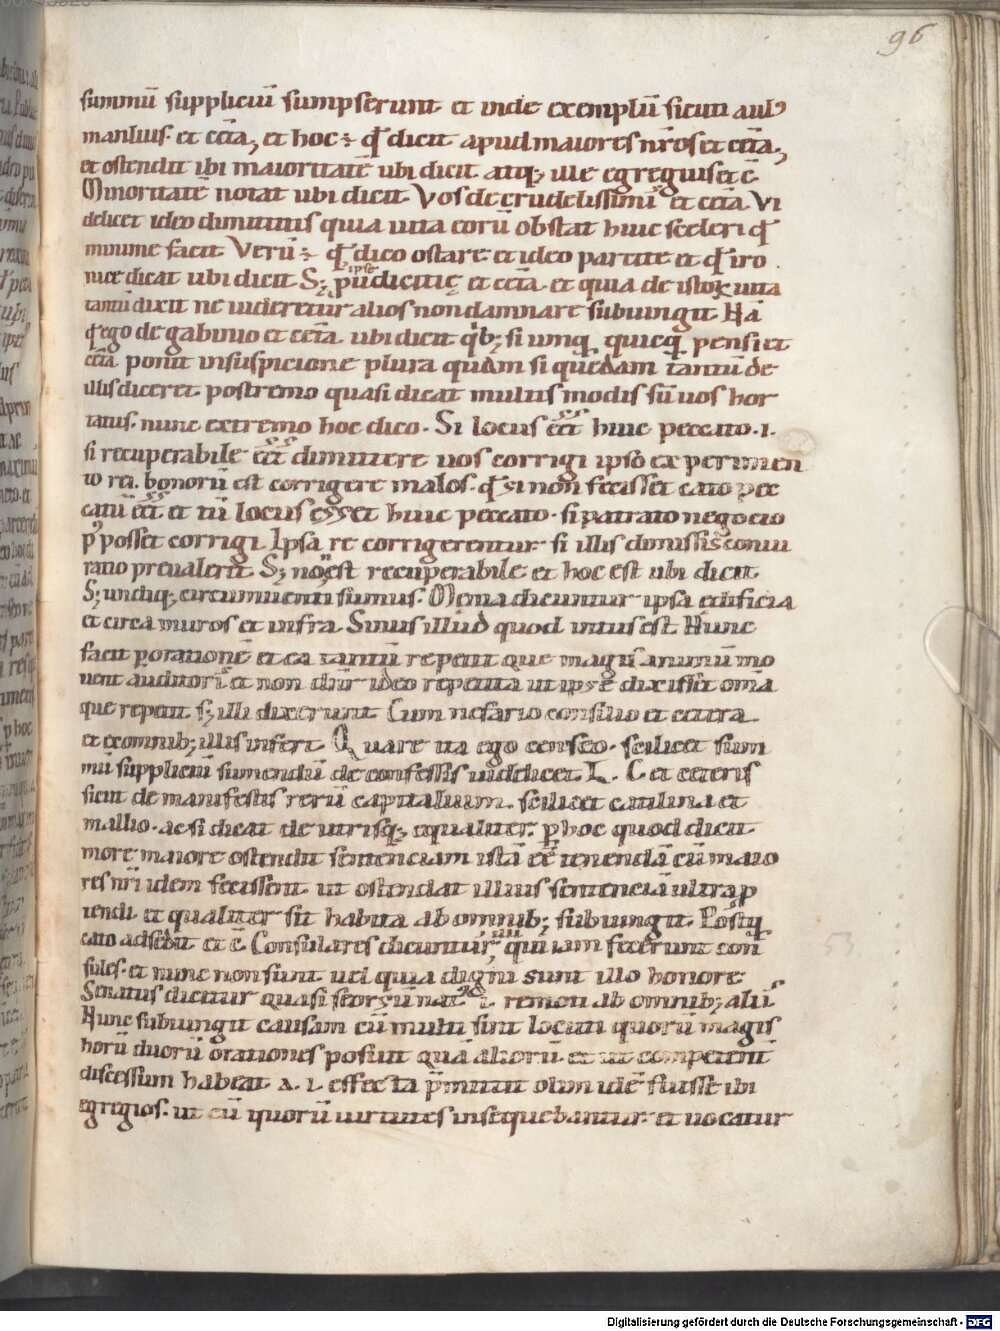 96
summū suppliciū sumpserunt et inde exemplū sicuti aul᾽
manlius. et cet̄a, et hoc ÷ qđ dicit apud maiores nr̄os et cet̄a,
et ostendit ibi maioritatē ubi dicit atq; ille egregius et c̄
Minoritatē notat ubi dicit. Vos de crudelissimis et cet̄a Vi
delicet ideo dimittitis quia uita eorū obstat huic sceleri qđ
minime facit Verū ÷ qđ dico ostare et ideo parcite et qđ iro
nice dicat ubi dicit S; ipse pudicitię et cet̄a. et quia de istoꝝ uita
tantū dixit ne uideretur alios non damnare subiungit Nā
qđ ego de gabinio et cet̄a. ubi dicit qb; si umq̄ quicq̄ pensi et
cet̄a ponit in suspicione plura quam si quedam tantū de
illis diceret. postremo quasi dicat multis modis sū uos hor
tatus. nunc extremo hoc dico. Si locus eēt huic peccato .i.
si recuperabile eēt dimittere uos corrigi ipso experimen
to rei. bonorū est corrigere malos. qđ si non fecisset cato pec
catū eēt et tū locus esset huic peccato. si patrato negocio
p᾽ posset corrigi Ipsa re corrigerentur si illis dimissis coniu
ratio preualerit S; non est recuperabile et hoc est ubi dicit
S; undiq; circumuenti sumus. Menia dicuntur ipsa edificia
et circa muros et infra. Sinus illud quod intus est Nunc
facit ꝑorationē et ea tantū repetit que magis animū mo
uent auditorū et non dn̄r ideo repetita ut ipse dixisset om̄a
que repetit. s; illi dixerunt Cum nefario consilio et cetera
et ex omnib; illis infert. Quare ita ego censeo. scilicet sum
mū suppliciū sumendū de confessis uidelicet. L. C et ceteris
sicut de manifestis rerū capitalium. scilicet catilina et
mallio. ac si dicat de utrisq; equaliter. ꝑ hoc quod dicit
more maiore ostendit sentenciam istā eē tenendā cū maio
res nr̄i idem fecissent. ut ostendat illius sentenciā ultra ꝓ
tendi. et qualiter sit habita ab omnib; subiungit. Postq̄
cato adsedit et c̄ Consulares dicuntur, qui iam fecerunt con
sules. et nunc non sunt uel quia digni sunt illo honore
Senatus dicitur quasi seorsū nat᾽ .i. remon ab omnib; aliis
Nunc subiungit causam cū multi sint locuti quorū magis
horū duorū orationes posuit quā aliorū. et ut competent̄
discessum habeat a. i. effecta p̄mittit olim idē fuisse ibi
egregios. ut cū quorū uirtutes insequebantur. et uocatur
53
Digitalisierung gefördert durch die Deutsche Forschungsgemeinschaft - DFG